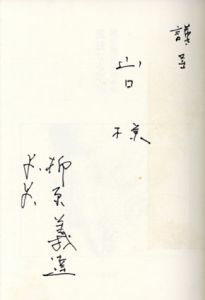 謹呈
山口様
柳原義達